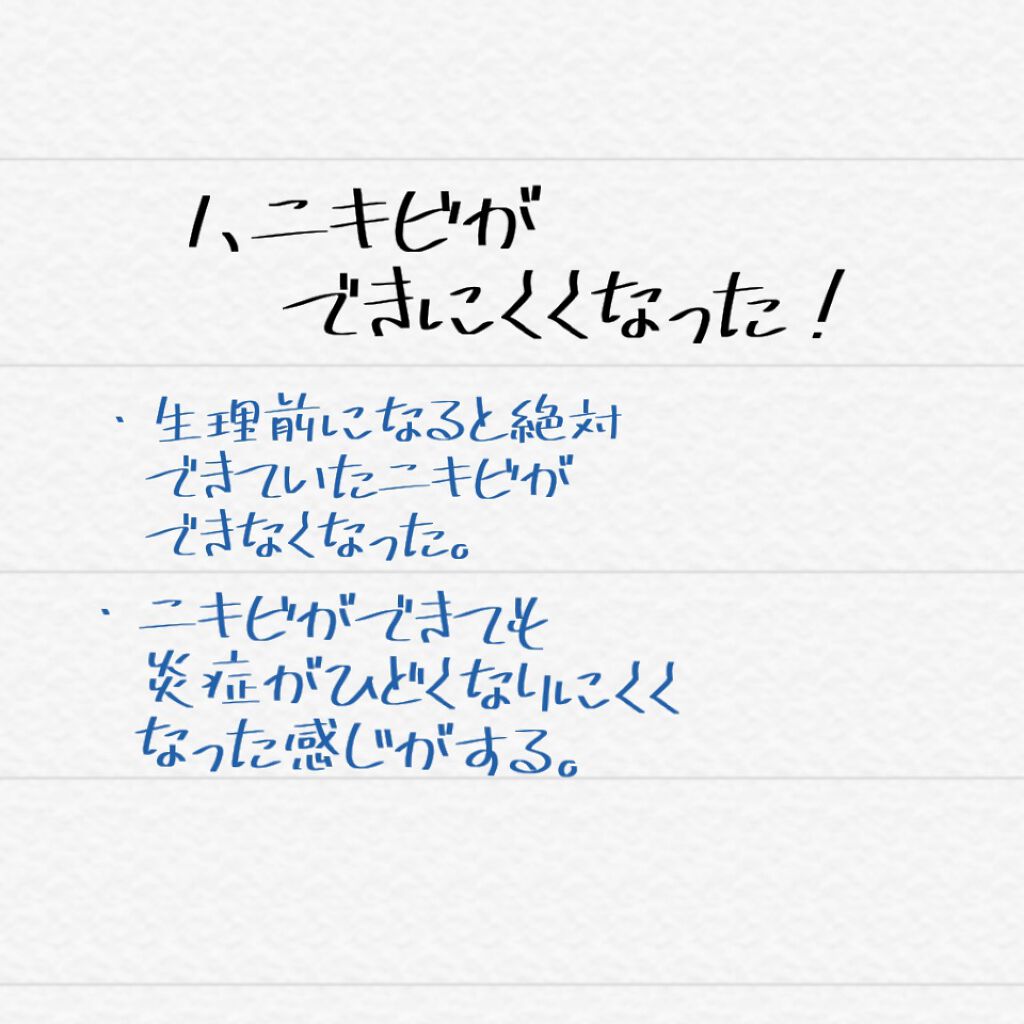 1、ニキビが
できにくくなった！
・生理前になると絶対
できていたニキビが
できなくなった。
・ニキビができても
炎症がひどくなりにくく
なった感じがする。